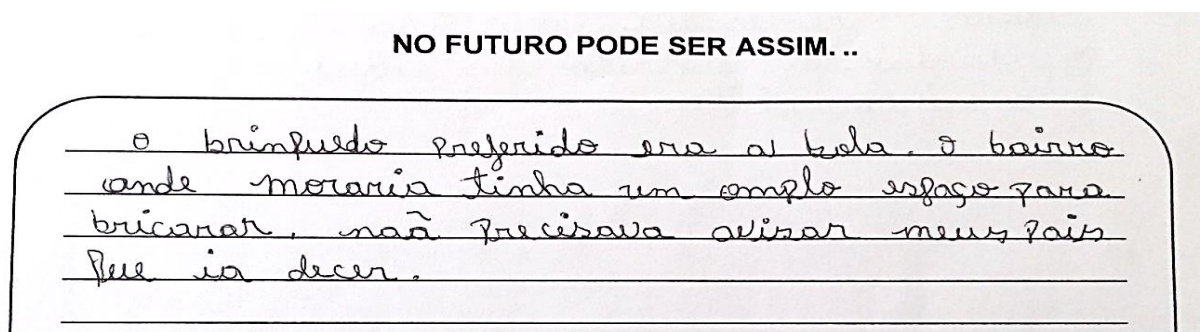 NO FUTURO PODE SER ASSIM. ..
O brinquedo preferido era a bola. O bairro
onde moraria tinha um amplo espaço para
bricarar. naã precisava avisar meus pais
que ia decer.